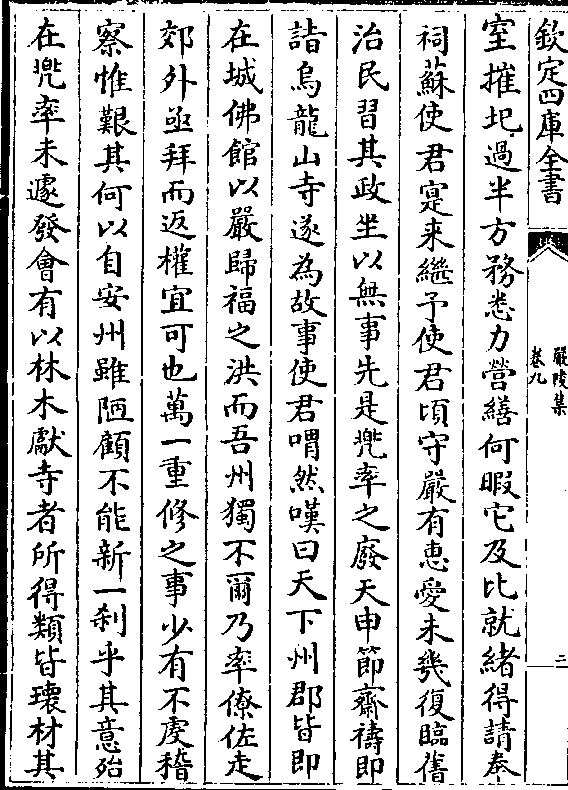 欽定四庫全書
嚴陵集
卷九
二
室摧圮過半方務悉力營繕何暇它及比就緒得請奉
祠蘇使君寔來繼予使君頃守嚴有惠愛未㡬復臨舊
治民習其政坐以無事先是兠率之廢天申節齋禱即
詣烏龍山寺遂為故事使君喟然嘆曰天下州郡皆即
在城佛館以嚴歸福之洪而吾州獨不爾乃率僚佐走
郊外亟拜而返權宜可也萬一重修之事少有不䖍稽
察惟艱其何以自安州雖陋顧不能新一刹乎其意殆
在兠率未遽發會有以林木獻寺者所得類皆瓌材其